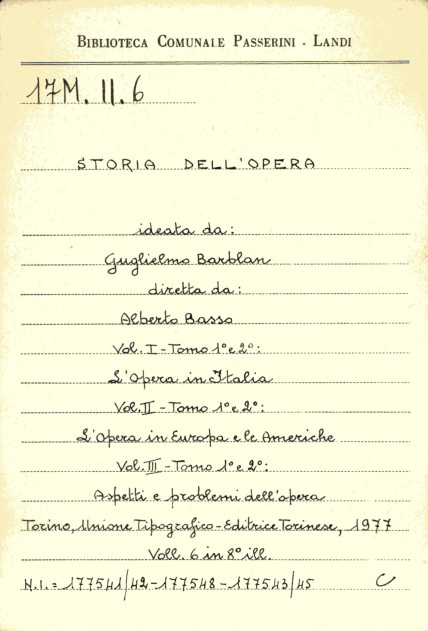 BIBLIOTECA COMUNALE PASSERINI - LANDI
17M. II. 6
STORIA DELL'OPERA
ideata da:
Guglielmo Barblan
diretta da:
Alberto Basso
Vol. I - Tomo 1° e 2°:
L'Opera in Italia
Vol. II - Tomo 1° e 2°:
L'Opera in Europa e le Americhe
Vol. III - Tomo 1° e 2°:
Aspetti e problemi dell'opera
Torino, Unione Tipografico-Editrice Torinese, 1977
Voll. 6 in 8° ill.
N.I. = 177541/42-177548-177543/45 C